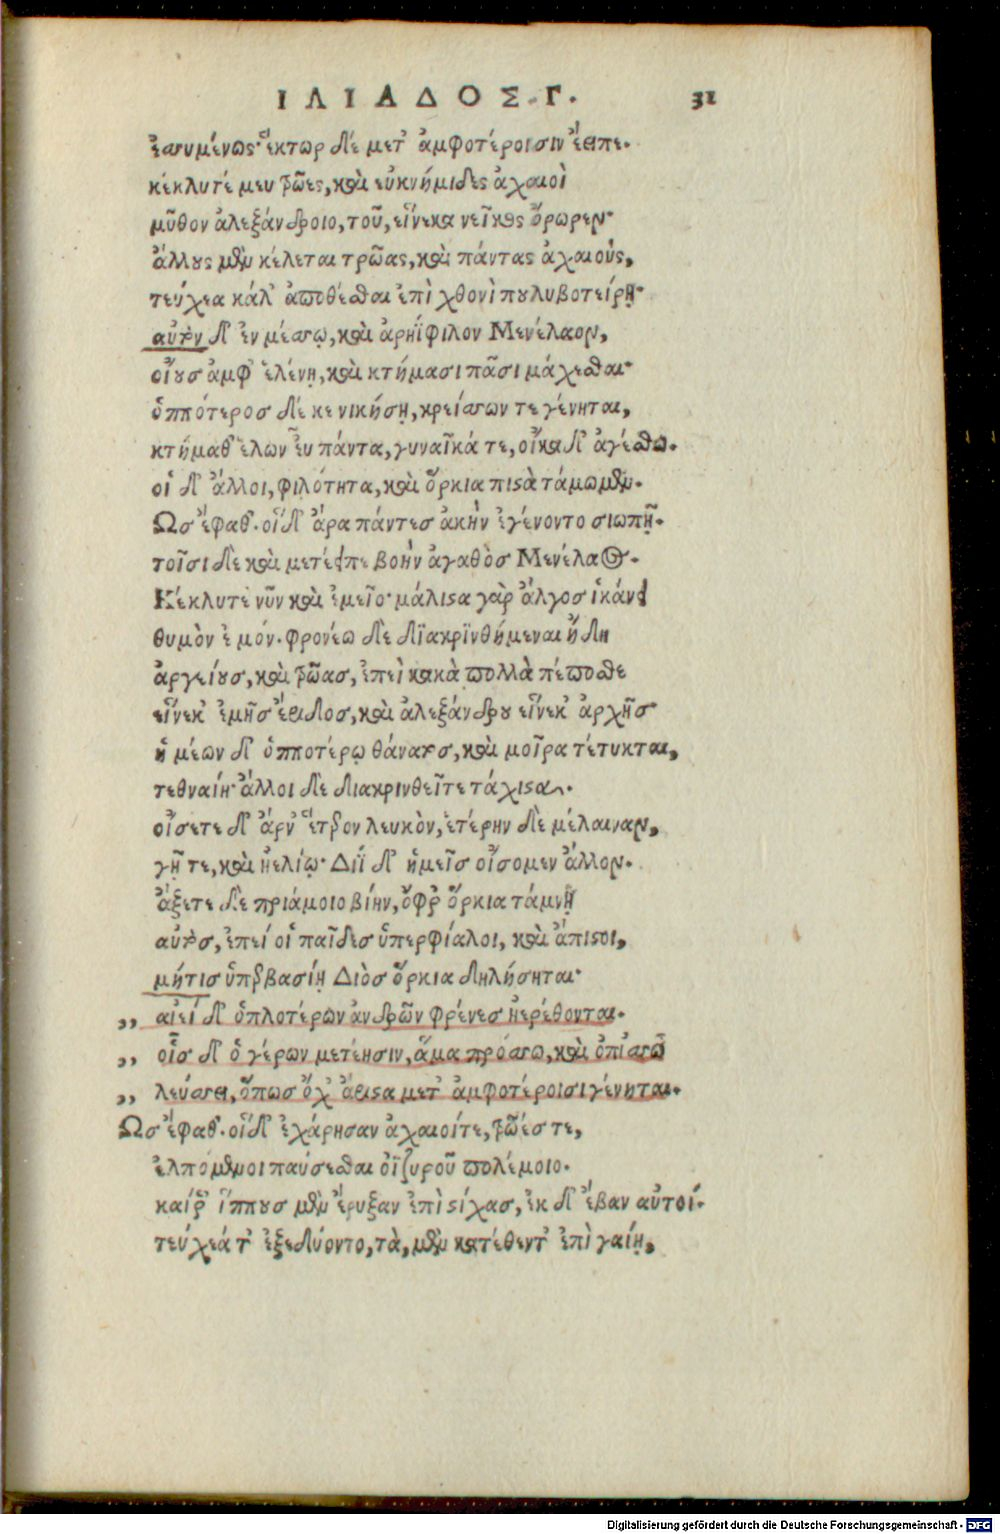 ΙΛΙΑΔΟΣ. Γ. 31
ἐσσυμένως· ἕκτωρ δὲ μετ᾽ ἀμφοτέροισιν ἔειπε.
κέκλυτέ μευ τρῶες, καὶ εὐκνήμιδες ἀχαιοὶ
μῦθον ἀλεξάνδροιο, τοῦ, εἵνεκα νεῖκος ὄρωρεν·
ἄλλους μὲν κέλεται τρῶας, καὶ πάντας ἀχαιούς,
τεύχεα κάλ᾽ ἀποθέσθαι ἐπὶ χθονὶ πουλυβοτείρῃ·
αὐτὸν δ᾽ ἐν μέσσῳ, καὶ ἀρηΐφιλον Μενέλαον,
οἴους ἀμφ᾽ ἑλένῃ, καὶ κτήμασι πᾶσι μάχεσθαι·
ὁππότερος δέ κε νικήσῃ, κρείσσων τε γένηται,
κτήμαθ᾽ ἑλὼν εὖ πάντα, γυναῖκά τε, οἴκαδ᾽ ἀγέσθω.
οἱ δ᾽ ἄλλοι, φιλότητα, καὶ ὅρκια πιστὰ τάμωμεν.
Ὣς ἔφαθ᾽. οἵδ᾽ ἄρα πάντες ἀκὴν ἐγένοντο σιωπῇ.
τοῖσι δὲ καὶ μετέειπε βοὴν ἀγαθὸς Μενέλαος.
Κέκλυτε νῦν καὶ ἐμεῖο· μάλιστα γὰρ ἄλγος ἱκάνει
θυμὸν ἐμόν. φρονέω δὲ διακρινθήμεναι ἤδη
ἀργείους, καὶ τρῶας, ἐπεὶ κακὰ πολλὰ πέποσθε
εἵνεκ᾽ ἐμῆς ἔριδος, καὶ ἀλεξάνδρου εἵνεκ᾽ ἀρχῆς·
ἡμέων δ᾽ ὁπποτέρῳ θάνατος, καὶ μοῖρα τέτυκται,
τεθναίη· ἄλλοι δὲ διακρινθεῖτε τάχιστα.
οἴσετε δ᾽ ἄρν᾽ ἕτερον λευκὸν, ἑτέρην δὲ μέλαιναν,
γῇ τε, καὶ ἠελίῳ· Διῒ δ᾽ ἡμεῖς οἴσομεν ἄλλον.
ἄξετε δὲ πριάμοιο βίην, ὄφρ᾽ ὅρκια τάμνῃ
αὐτὸς, ἐπεί οἱ παῖδες ὑπερφίαλοι, καὶ ἄπιστοι,
μήτις ὑπερβασίῃ Διὸς ὅρκια δηλήσηται·
,, αἰεὶ δ᾽ ὁπλοτέρων ἀνδρῶν φρένες ἠερέθονται.
,, οἷς δ᾽ ὁ γέρων μετέησιν, ἅμα πρόσσω, καὶ ὀπίσσω
,, λεύσσει, ὅπως ὄχ᾽ ἄριστα μετ᾽ ἀμφοτέροισι γένηται.
Ὣς ἔφαθ᾽. οἵδ᾽ ἐχάρησαν ἀχαιοίτε, τρῶές τε,
ἐλπόμενοι παύσεσθαι οἰζυροῦ πολέμοιο.
καίρ᾽ ἵππους μὲν ἔρυξαν ἐπὶ στίχας, ἐκ δ᾽ ἔβαν αὐτοί·
τεύχεά τ᾽ ἐξεδύοντο, τὰ, μὲν κατέθεντ᾽ ἐπὶ γαίῃ,
Digitalisierung gefördert durch die Deutsche Forschungsgemeinschaft - DFG